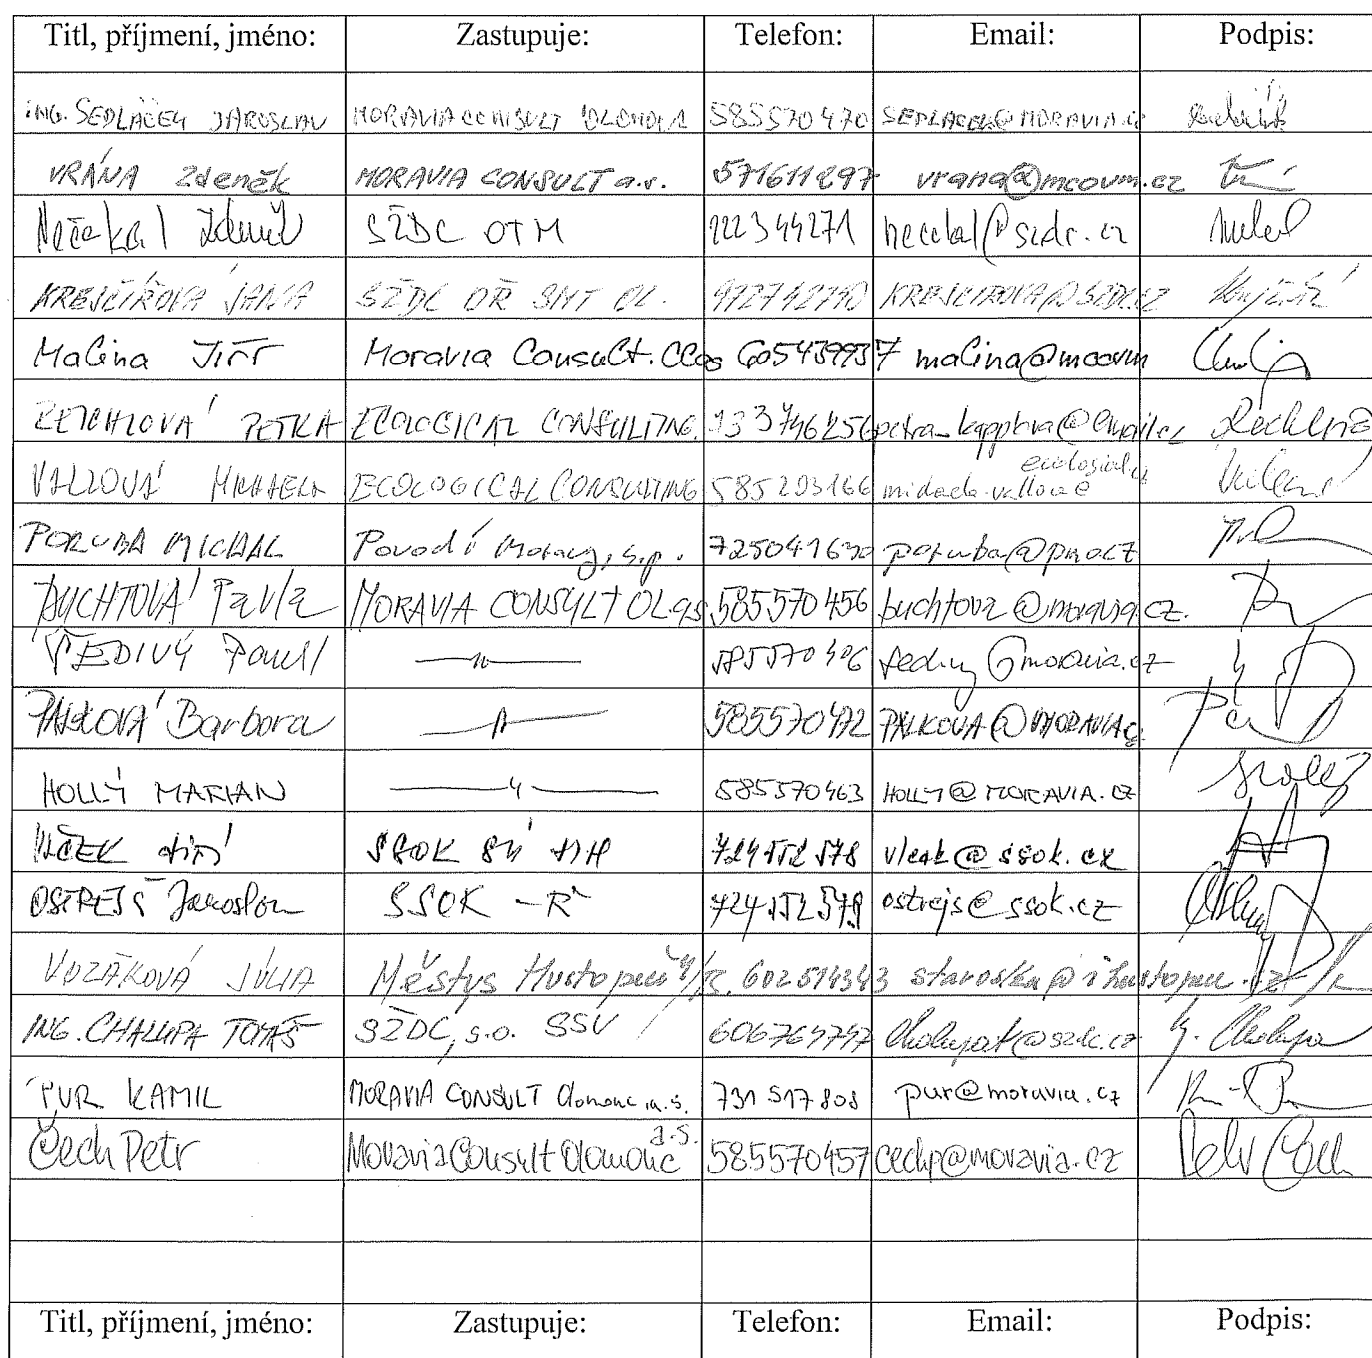 Titl, příjmení, jméno: Zastupuje: Telefon: Email: Podpis:
ING. SEDLÁČEK JAROSLAV MORAVIA CONSULT OLOMOUC 585570470 SEDLACEK@MORAVIA.CZ
VRÁNA Zdeněk MORAVIA CONSULT a.s. 571611297 vrana@mcovm.cz
Nečekal Zdeněk SŽDC OTM 222344271 necekal@szdc.cz
KREJČÍŘOVÁ JANA SŽDC OŘ SMT OL. 972742740 KREJCIROVA@SZDC.CZ
Malina Jiří Moravia Consult. OLas 605439937 malina@mcovm
REICHLOVÁ PETRA ECOLOGICAL CONSULTING 733746256
VALLOVÁ MICHAELA ECOLOGICAL CONSULTING 585203166
PORUBA MICHAL Povodí Moravy, s.p. 725041630 poruba@pmo.cz
BUCHTOVÁ Pavla MORAVIA CONSULT OL a.s. 585570456 buchtova@moravia.cz.
ŠEDIVÝ Pavel —"— 585570406 sediv@moravia.cz
PÁLKOVÁ Barbora —"— 585570472 PALKOVA@MORAVIA.CZ
HOLLÝ MARIAN —"— 585570463 HOLLY@MORAVIA.CZ
VLČEK Jiří SSOK 724152578 vlcek@ssok.cz
OSTREJŠ Jaroslav SSOK - Ř 724152579 ostrejs@ssok.cz
VOZÁKOVÁ JÚLIA Městys Hustopeče n/B. 602514343 starostka@ihustopece.cz
ING. CHALUPA TOMÁŠ SŽDC, s.o. SSV 606764747 chalupat@szdc.cz Chalupa
PUR KAMIL MORAVIA CONSULT Olomouc, a.s. 731 517 808 pur@moravia.cz
Čech Petr Moravia Consult Olomouc a.s. 585570457 cechp@moravia.cz Petr Čech
Titl, příjmení, jméno: Zastupuje: Telefon: Email: Podpis: